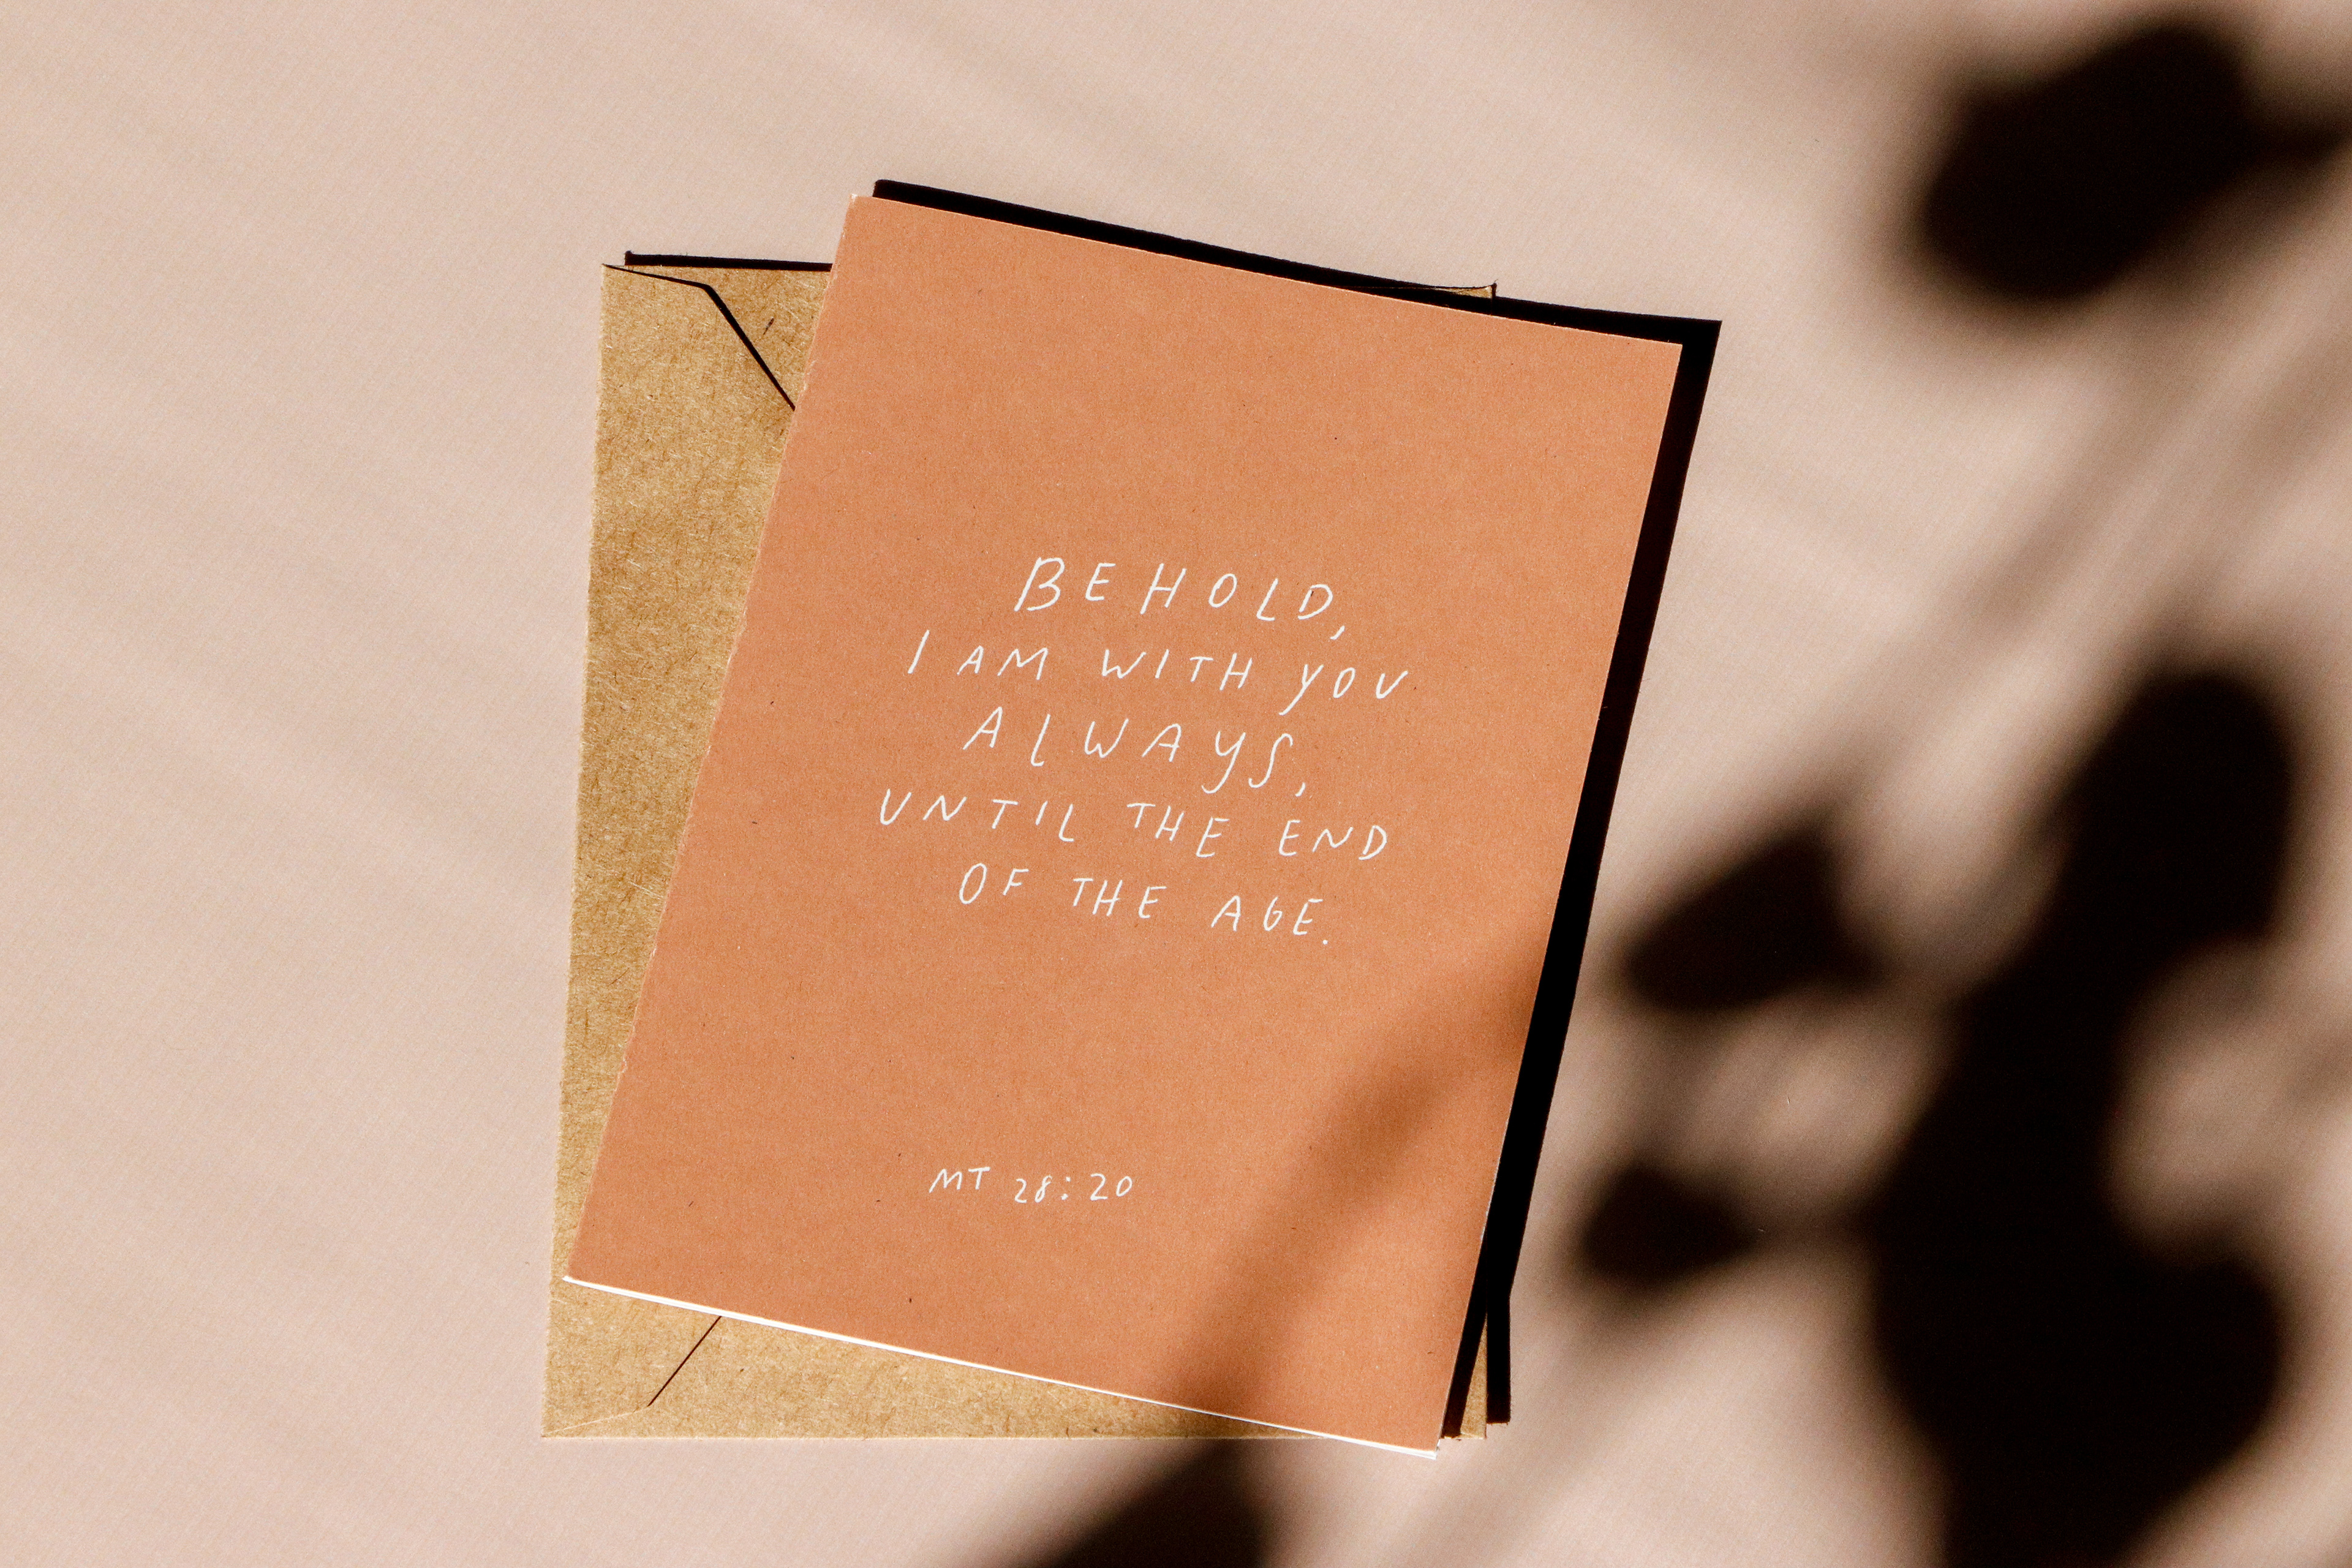 BEHOLD,
I AM WITH YOU
ALWAYS,
UNTIL THE END
OF THE AGE.
MT 28:20